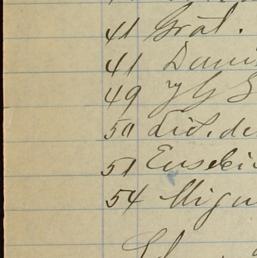 41 Gral.
41
49 y G
50 Lid. de
51 Eusebi
54 Migu